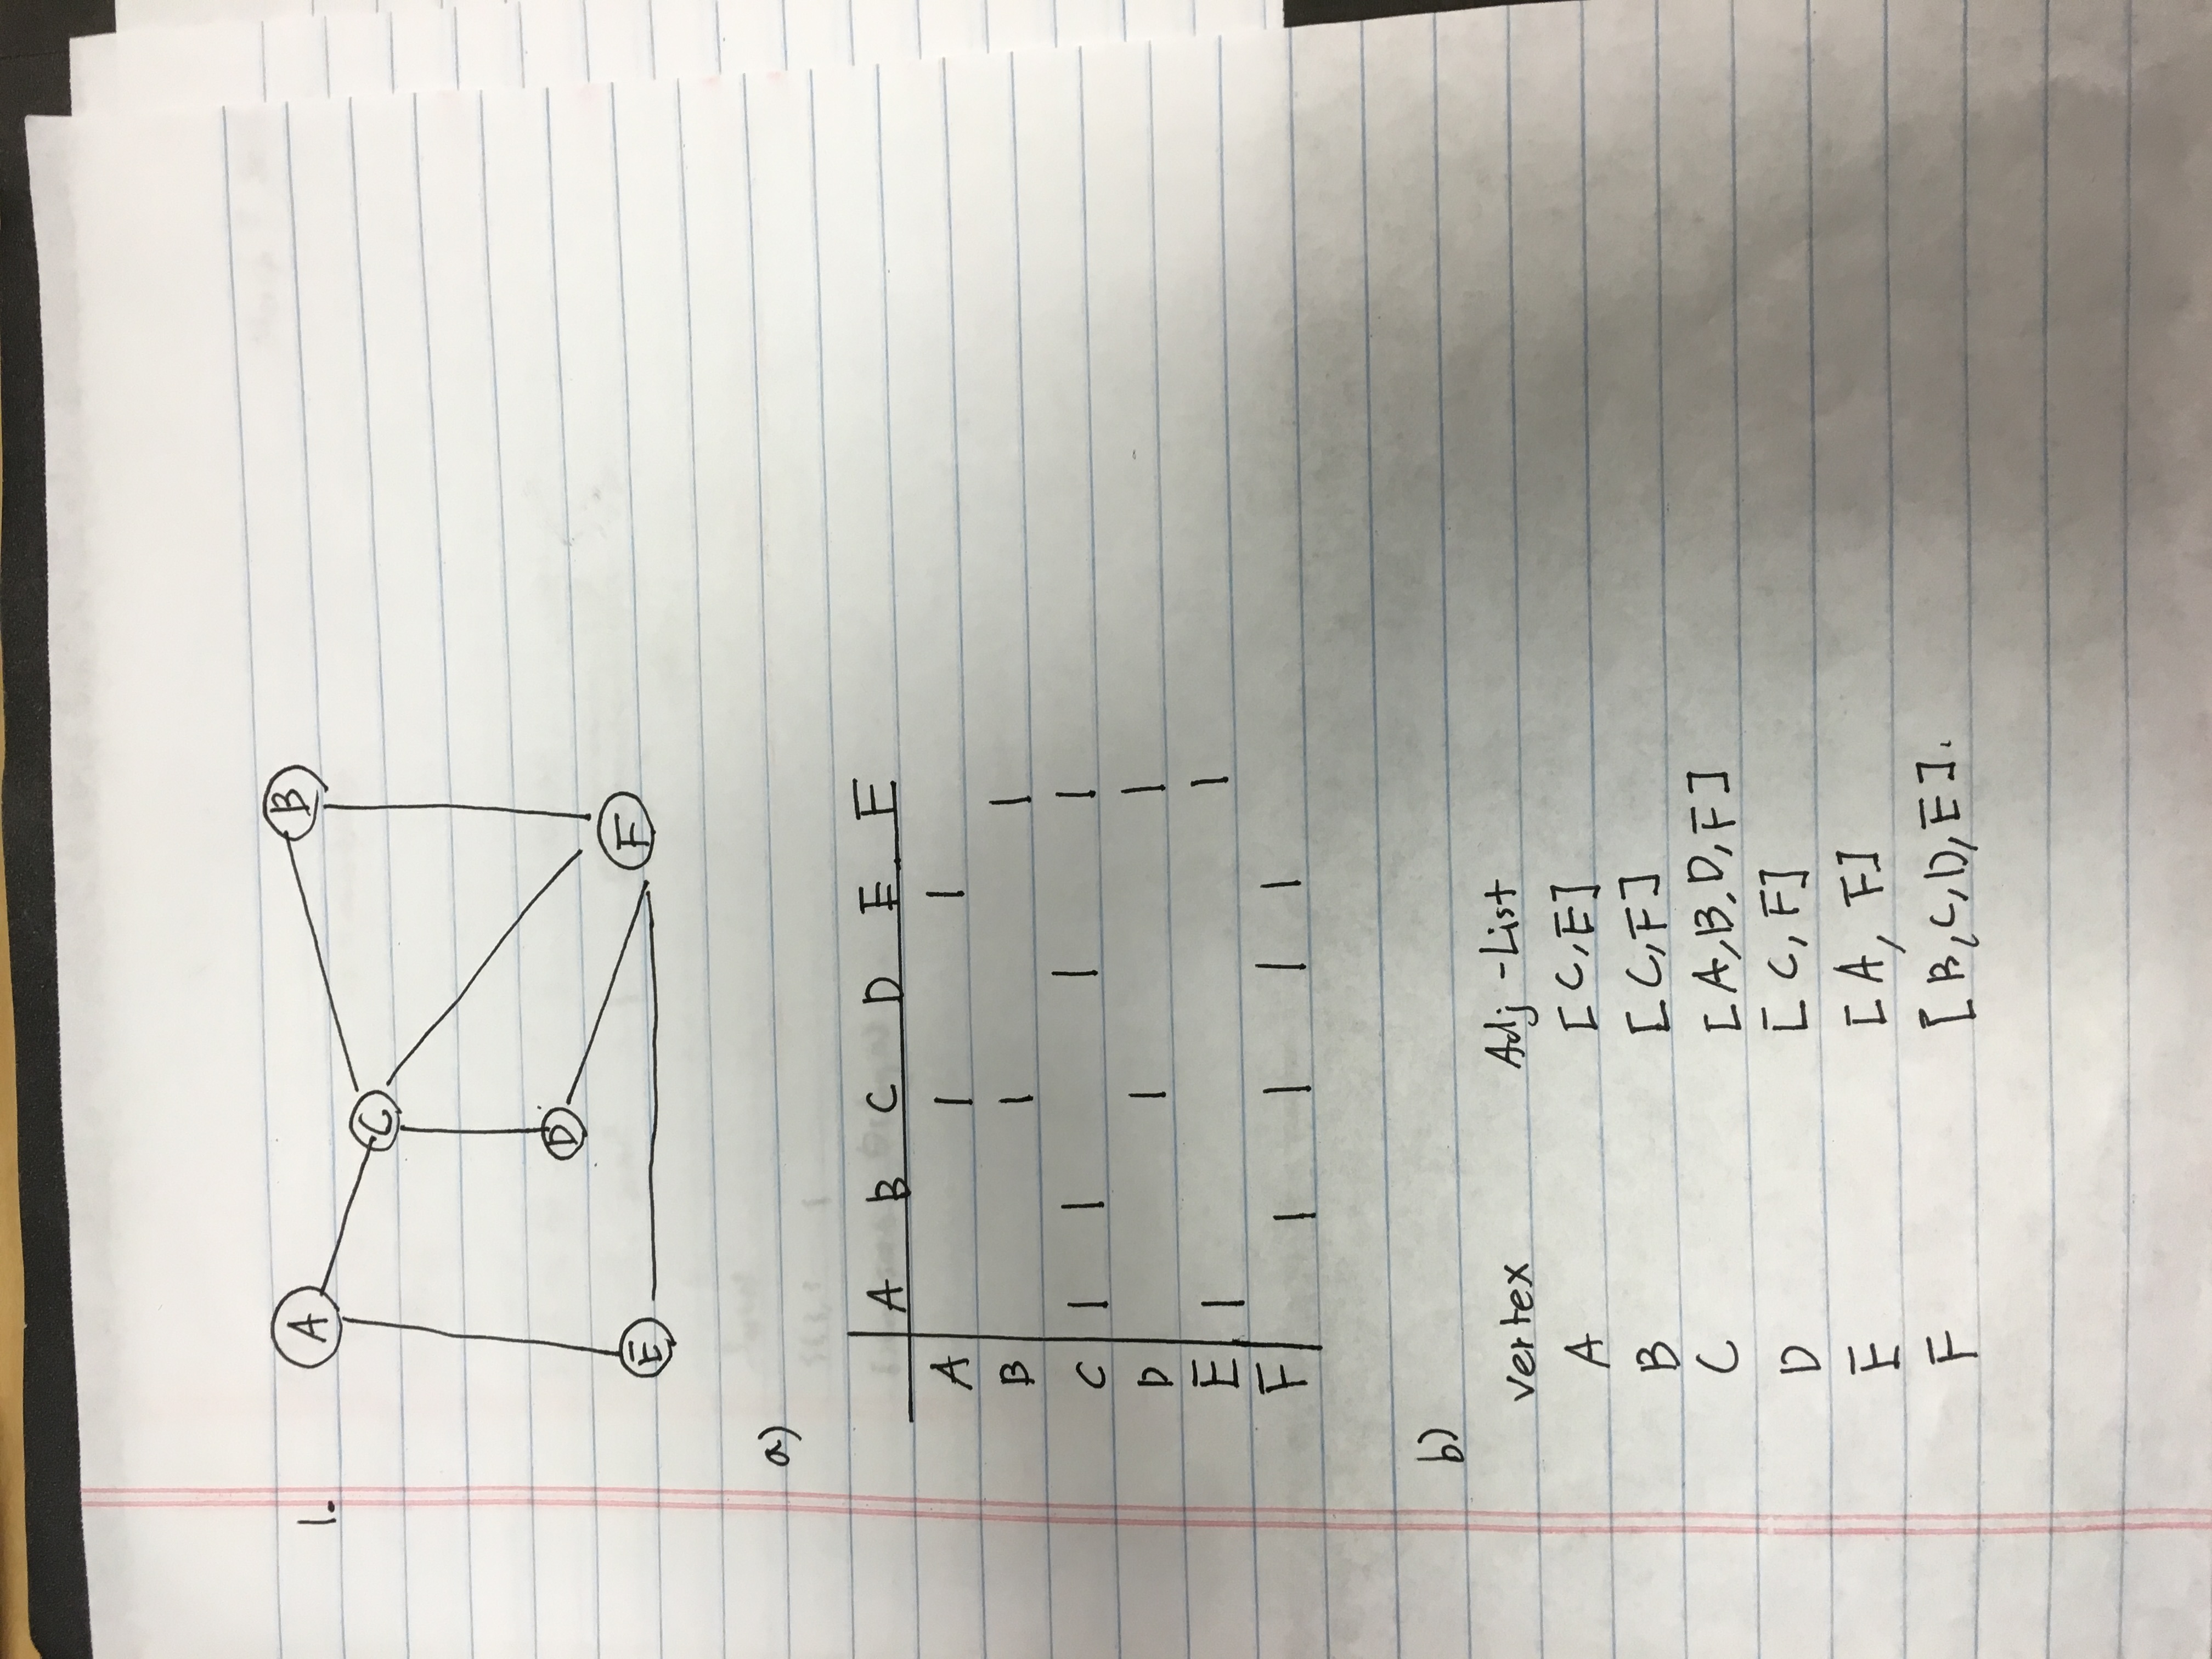 1.
A
B
C
D
E
F
a)
A B C D E F
A 1 1
B 1 1
C 1 1 1 1
D 1 1
E 1 1
F 1 1 1 1
b)
vertex Adj-List
A [C,E]
B [C,F]
C [A,B,D,F]
D [C,F]
E [A, F]
F [B,C,D,E].